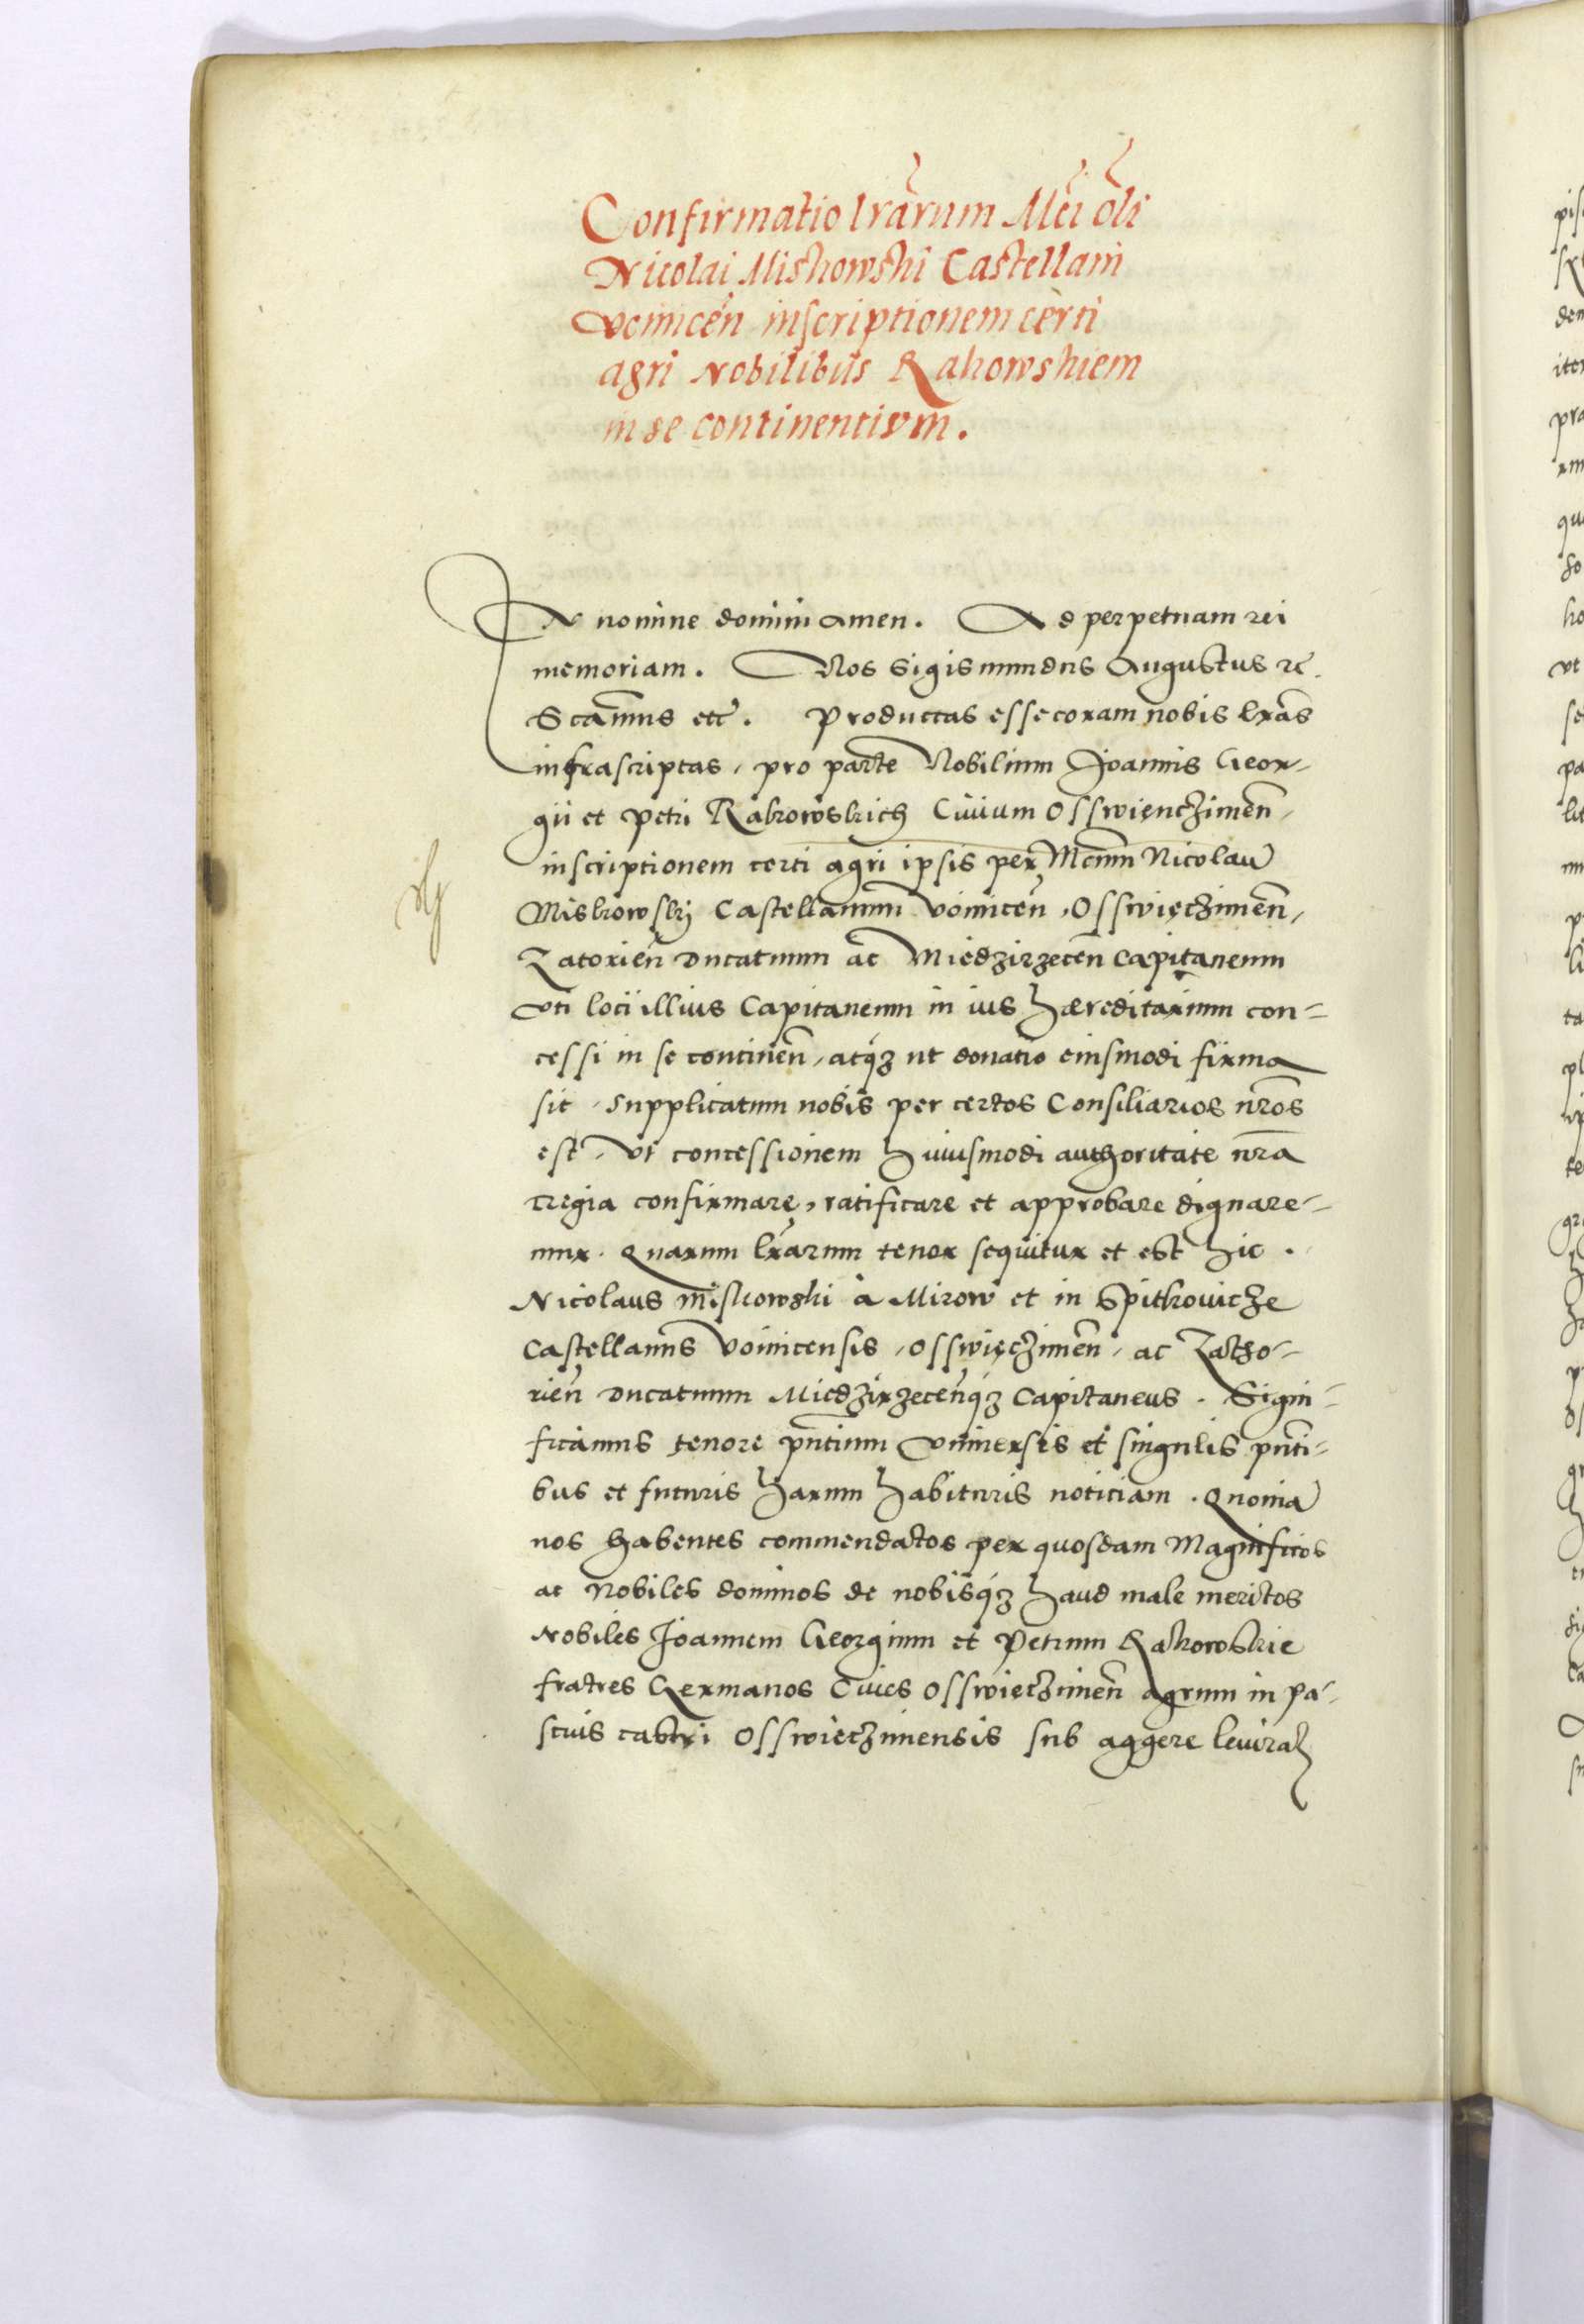 Confirmatio lrarum Mci olī
Nicolai Mishowski Castellani
voinicen̄ inscriptionem certi
agri Nobilibus Rakowskiem
in se continentium.
In nomine domini amen. Ad perpetuam rei
memoriam. Nos Sigismundus Augustus rē.
Scamus etc̄. Productas esse coram nobis lrās
infrascriptas, pro parte Nobilium Joannis Geor-
gii et Petri Rakowskich Civium Osswienczimen̄,
inscriptionem certi agri ipsis per Mcum Nicolaū
Miskowskij Castellanum Voinicen̄, Osswięczimen̄,
Zatorien̄ Ducatuum ac Miedzirzecen̄ Capitaneum
uti locii illius Capitaneum in ius haereditarium con-
cessi in se continen̄, atq́ʒ ut donatio eiusmodi firma
sit, supplicatum nobis per certos Consiliarios nr̄os
est, ut concessionem huiusmodi authoritate nr̄a
regia confirmare, ratificare et approbare dignare-
mur. Quarum lrārum tenor sequitur et est hic.
Nicolaus Miskowski à Mirow et in Spitkouicze
Castellanus Voinicensis, Osswięczimen̄, ac Zatho-
rien̄ Ducatuum Miedzirzecen̄q́ʒ Capitaneus. Signi-
ficamus tenore pn̄tium Vniversis et singulis pn̄ti-
bus et futuris harum habituris noticiam. Quoniā
nos habentes commendatos per quosdam Magnificos
ac Nobiles dominos de nobisq́ʒ haud male meritos
Nobiles Joannem Georgium et Petrum Rakowskie
fratres Germanos Cives Osswięczimen̄ agrum in pa-
scuis castri Osswięczimensis sub aggere